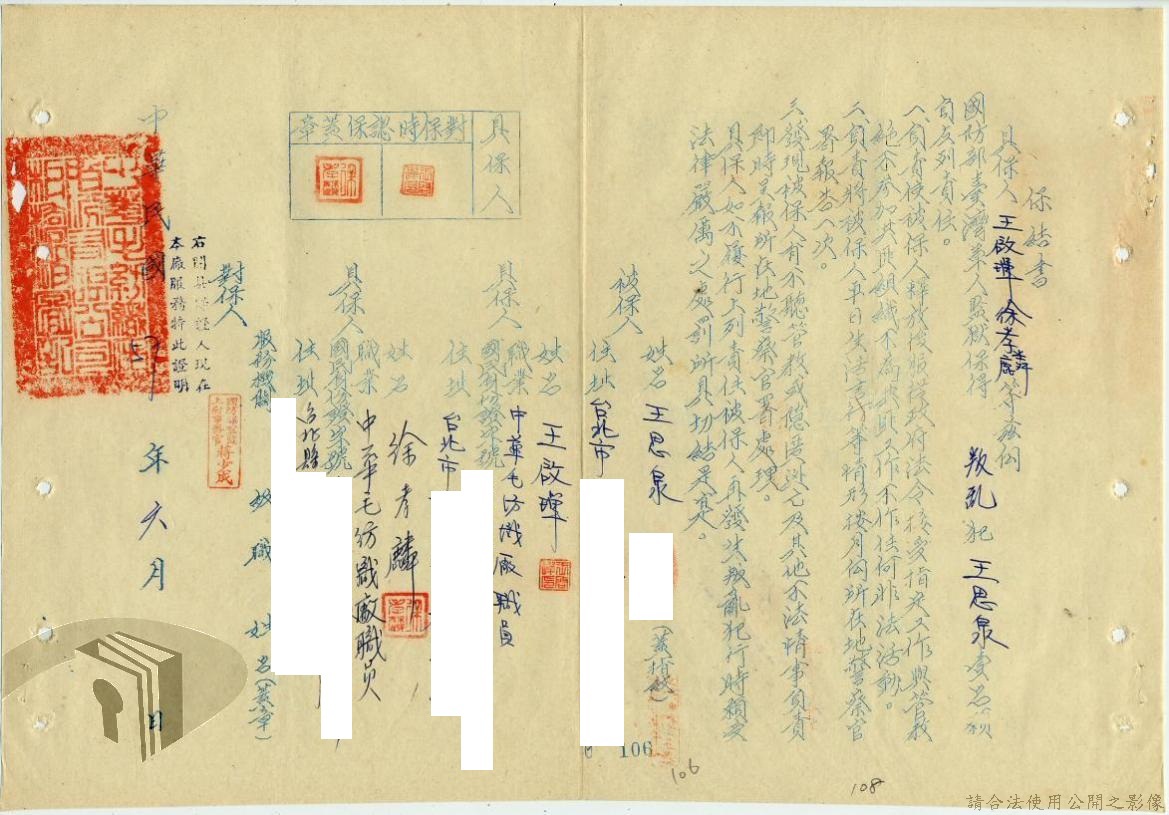 保結書
具保人王啟瑋徐孝麟等茲向
國防部臺灣軍人監獄保得 叛亂犯王思泉壹名願
負左列責任。
一、負責使被保人釋放後服從政府法令接受指定工作與管教
絕不參加共匪組織不為共匪工作不作任何非法活動。
二、負責將被保人平日生活言行等情形按月向所在地警察官
署報告一次。
三、發現被保人有不聽管教或隱匿逃亡及其他不法情事負責
即時呈報所在地警察官署處理。
具保人如不履行上列責任被保人再發生叛亂犯行時願受
法律嚴厲之處罰所具切結是實。
被保人
姓名 王思泉 (蓋指紋)
住址 台北市
具保人
姓名 王啟瑋
職業 中華毛紡織廠職員
國民身份證 號
住址 台北市
具保人
姓名 徐孝麟
職業 中華毛紡織廠職員
國民身份證 號
住址 台北縣
具保人
對保時認保蓋章
對保人
服務機關 級職 姓名(蓋章)
蔣少成
右開具保證人現在
本廠服務特此證明
中華民國 年六月 日
106
106
108
請合法使用公開之影像